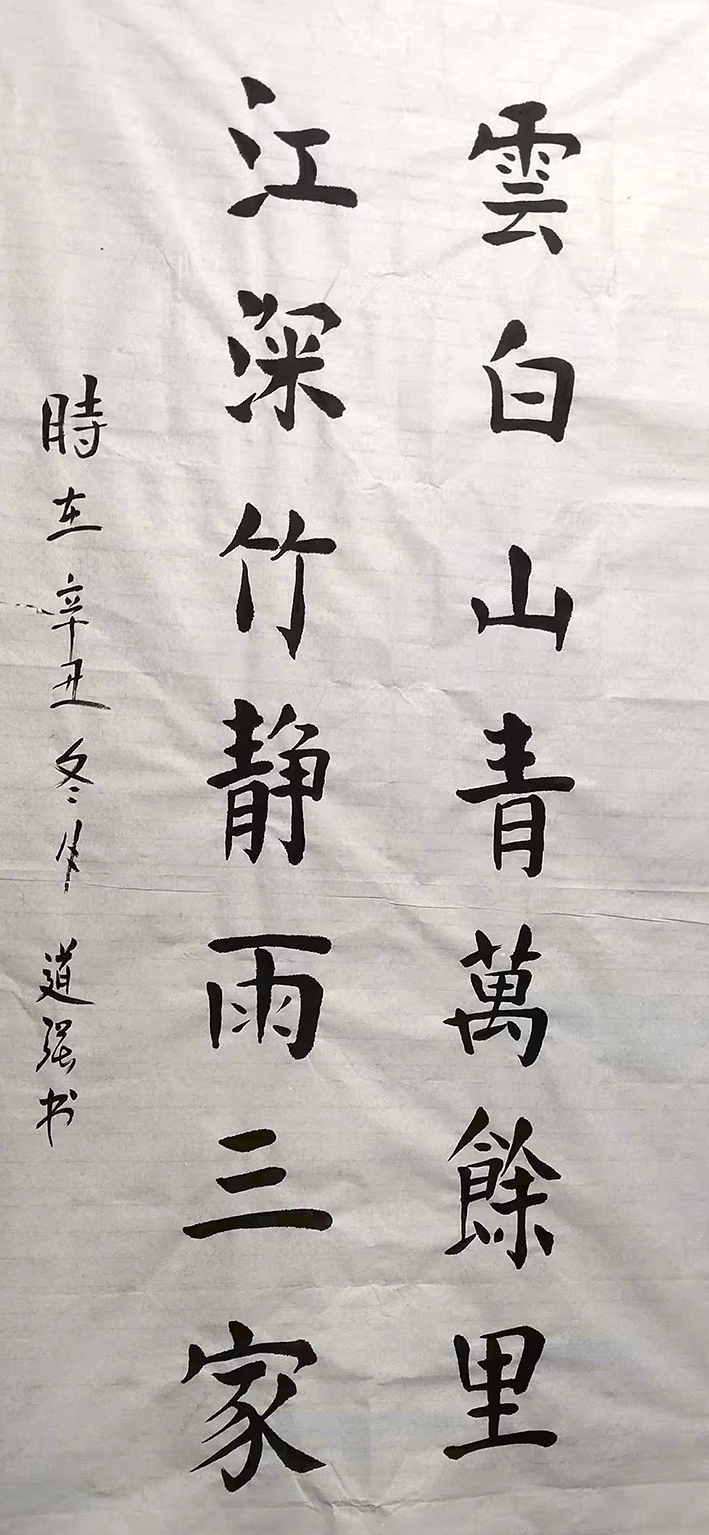 雲白山青萬餘里
江深竹静雨三家
時在辛丑冬月道强书